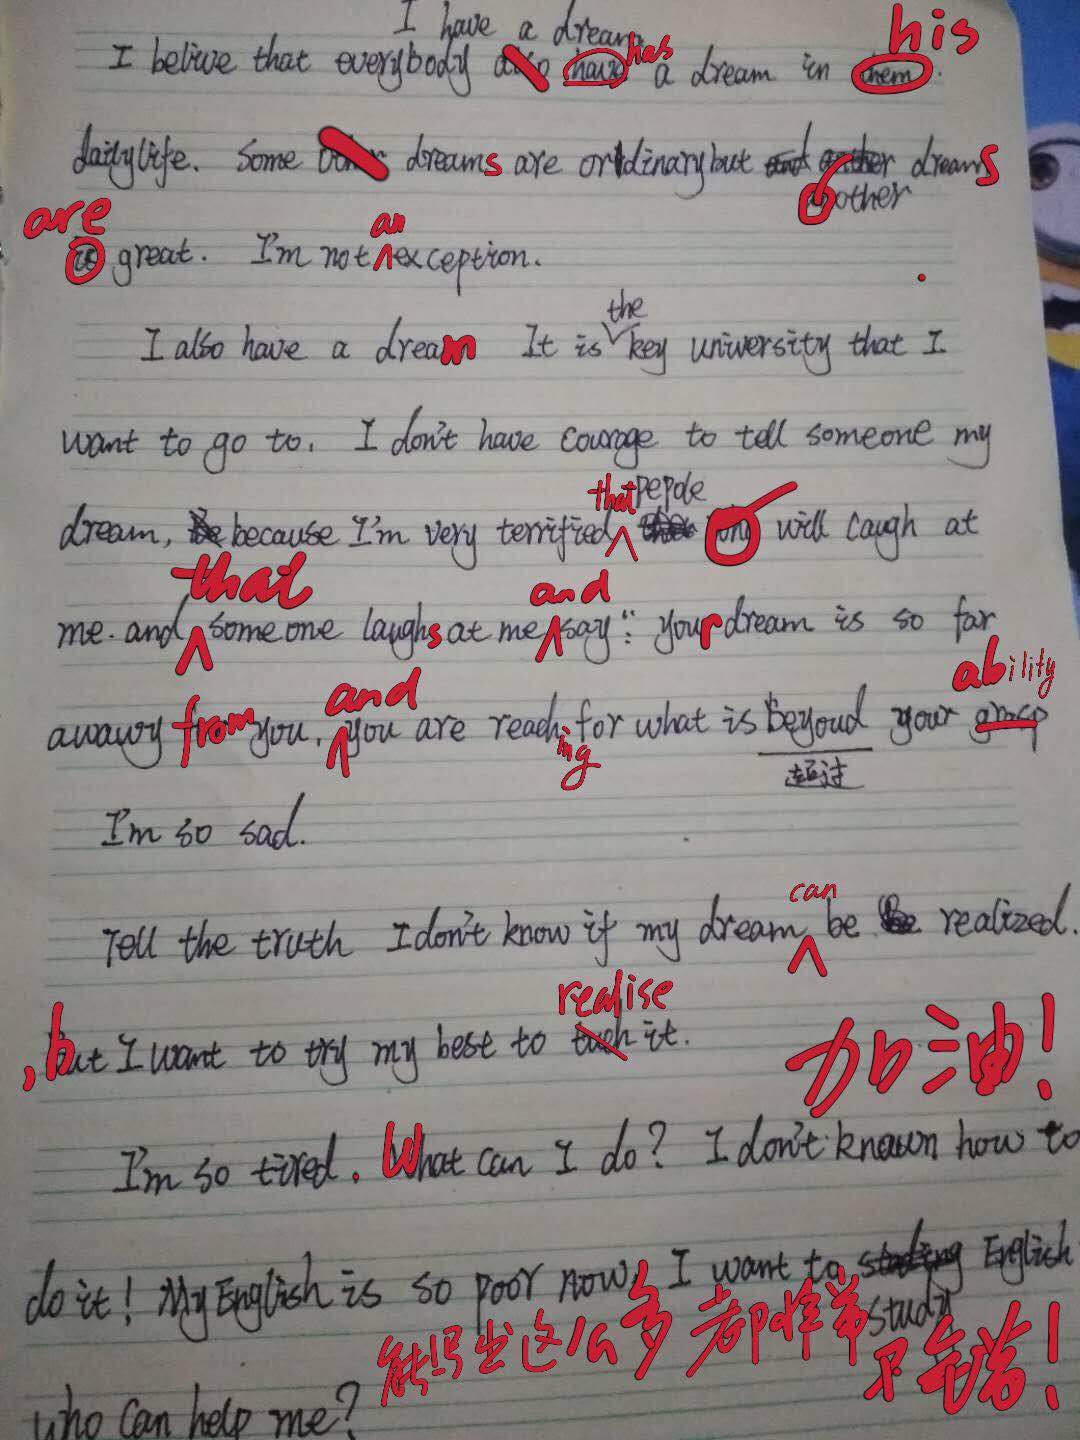 I have a dream
I belive that everybody have has a dream in them his.
dailylife. Some dreams are ordinary but another dreams
are is great. I'm not an exception.
I also have a dream It is the key university that I
want to go to. I don't have courage to tell someone my
dream, because I'm very terrified that pepole will caugh at
me. and that someone laughs at me and say": your dream is so far
awawy from you, and you are reaching for what is Beyoud your ability
超过
I'm so sad.
Tell the truth I don't know if my dream can be realized.
,but I want to try my best to realise it.
加油!
I'm so tired. What can I do? I don't known how to
do it! My English is so poor now, I want to study English
能写出这么多 都非常不错!
who can help me?